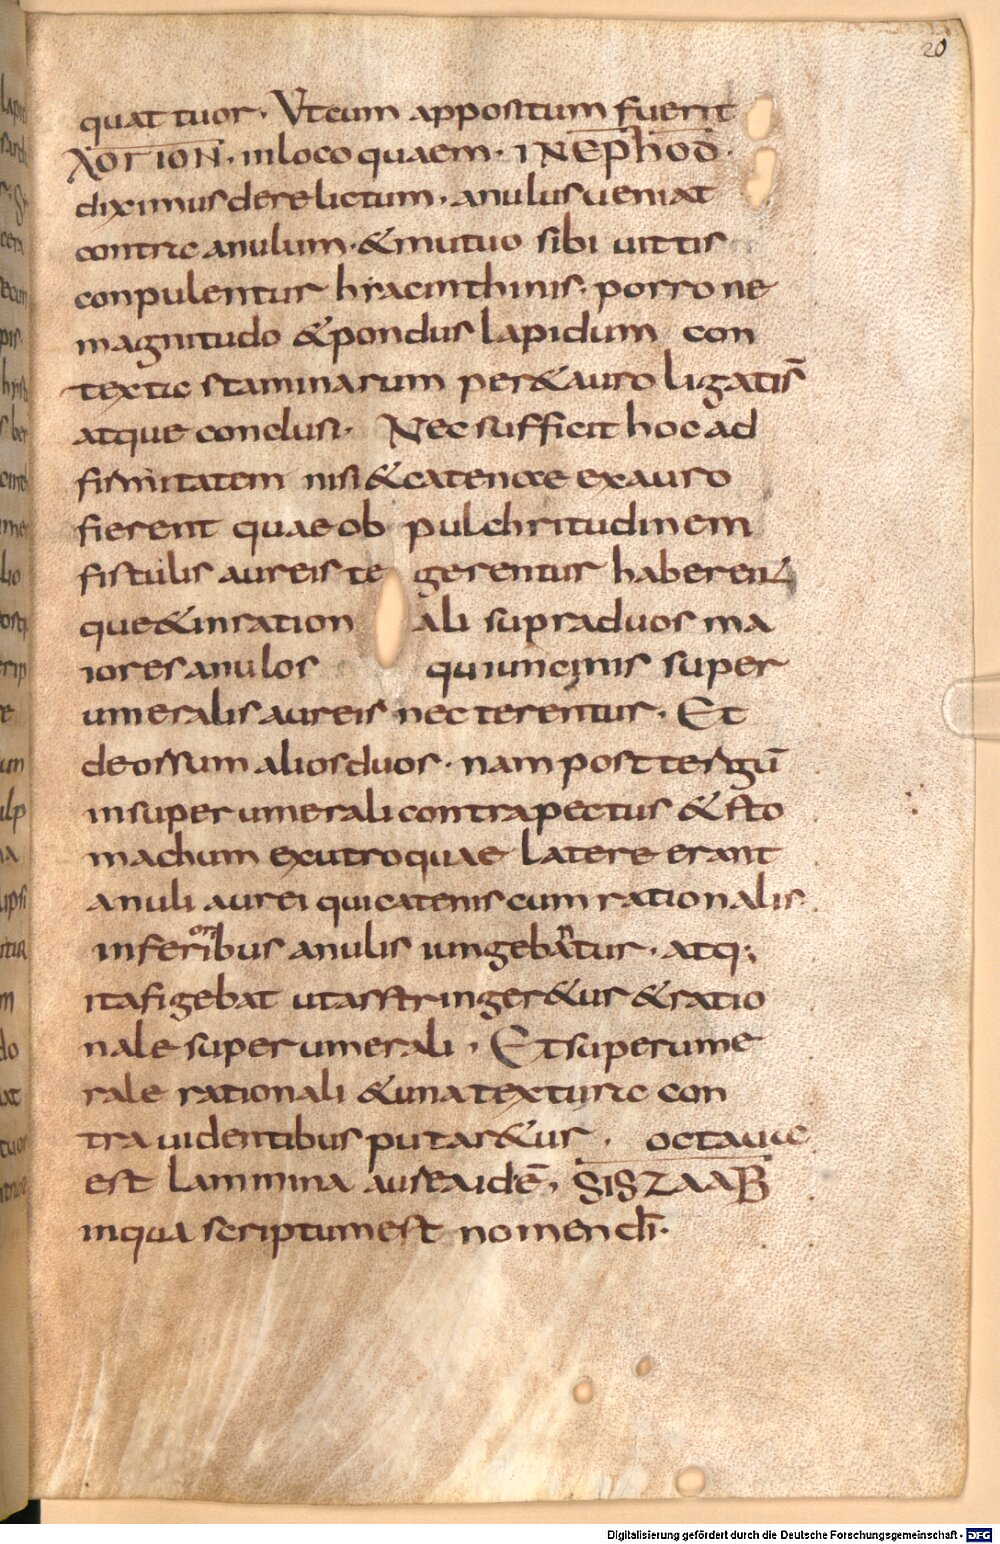 20
quattuor. Ut cum appositum fuerit
λΟΓΙΟΝ. in loco quaem. INEPHOD.
diximus derelictum. anulus ueniat
contra anulum. & mutuo sibi uittis
conpulentur hyacinthinis. porro ne
magnitudo & pondus lapidum con
texta staminarum per & auro ligatis
atque conclusi. Nec sufficit hoc ad
firmitatem nisi & catenae ex auro
fierent quae ob pulchritudinem
fistulis aureis tegerentur haberent
que & in rationali supra duos ma
iores anulos qui uncinis super
umeralis aureis necterentur. Et
deorsum alios duos. nam post tergū
in super umerali contra pectus & sto
machum ex utroquae latere erant
anuli aurei qui catenis cum rationalis
inferioribus anulis iungebantur. atq;
ita figebat ut astringer&ur & ratio
nale super umerali. Et super ume
rale rationali & una textura con
tra uidentibus putar&ur. octaua
est lammina aurea id ē. SISZAAB
in qua scriptum est nomen dī.
Digitalisierung gefördert durch die Deutsche Forschungsgemeinschaft - DFG